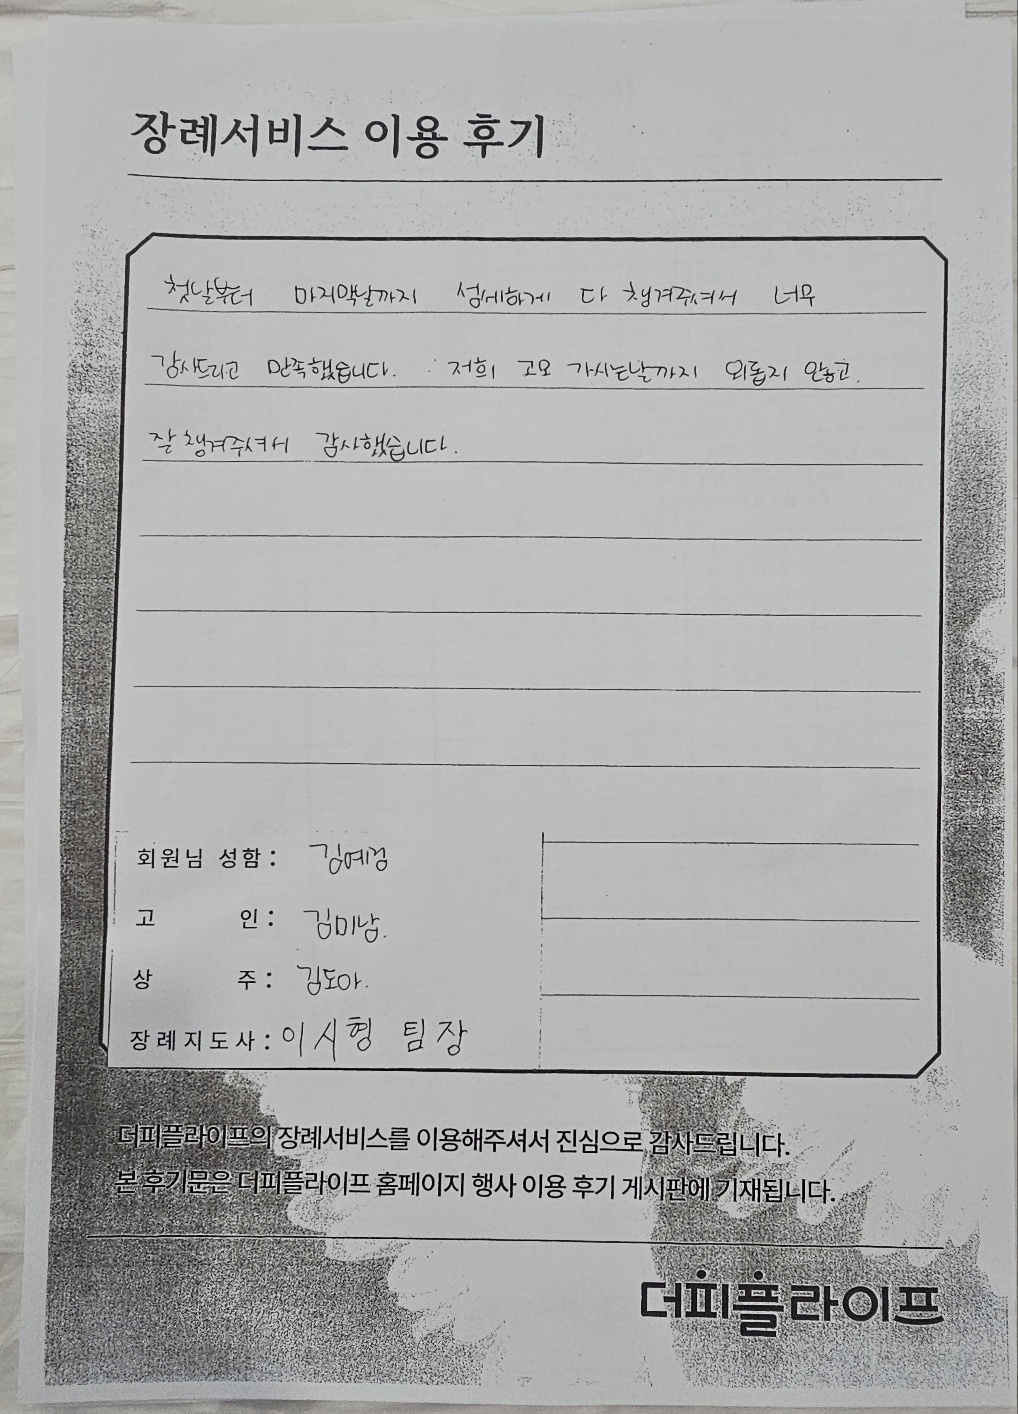 장례서비스 이용 후기
첫날부터 마지막날까지 섬세하게 다 챙겨주셔서 너무
감사드리고 만족했습니다. 저희 고모 가시는날까지 외롭지 않고
잘 챙겨주셔서 감사했습니다.
회원님 성함 : 김예림
고 인 : 김미남.
상 주 : 김도아.
장례지도사 : 이시형 팀장
더피플라이프의 장례서비스를 이용해주셔서 진심으로 감사드립니다.
본 후기문은 더피플라이프 홈페이지 행사 이용 후기 게시판에 기재됩니다.
더피플라이프